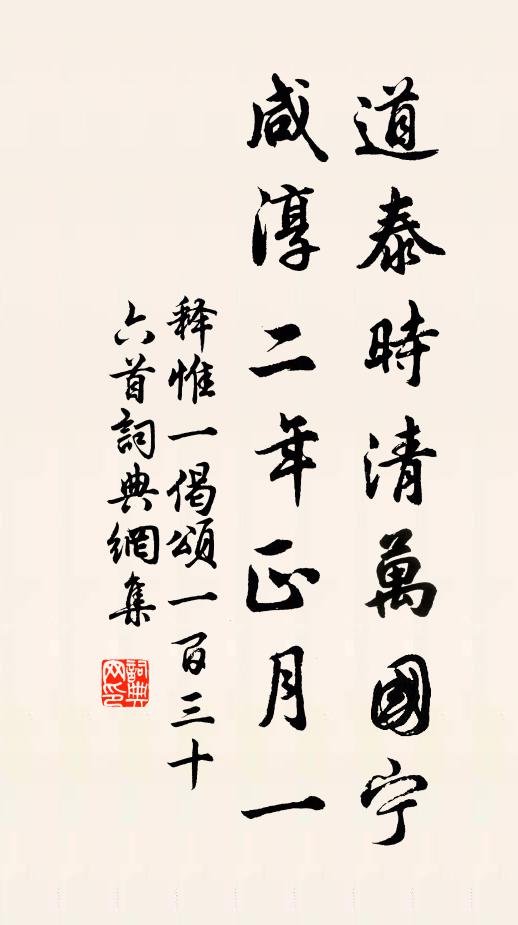 道泰時清萬國宁
咸淳二年正月一
释惟一偈頌一百三十
六首詞典網集
詞典
网印